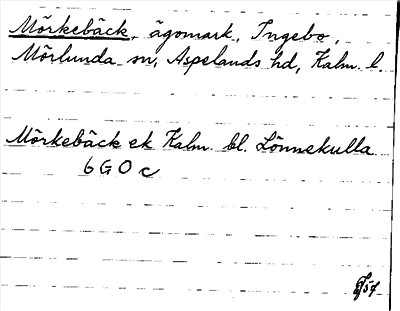 Mörkebäck, ägomark, Ingebo,
Mörlunda sn, Aspelands hd, Kalm. l.
Mörkebäck ek Kalm. bl. Lönnekulla
6 G O c